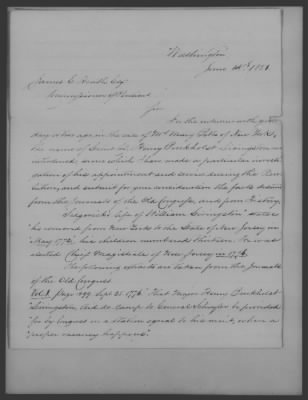 Washington
June 14th 1851
James E Heath Esq
Commissioner of Pensions
Sir
In the interview with you
day or two ago in the case of Mrs Mary Tibbs of New York,
the name of Lieut Col Henry Brockholst Livingston was
introduced, since which I have made a particular investi-
gation of his appointment and service during the Revo-
lution, and submit for your consideration the facts drawn
from the Journals of the Old Congress, and from History.
Sedgwick's life of William Livingston states
his removal from New York to the State of New Jersey in
May 1772, his children numbered thirteen. He was
elected Chief Magistrate of New Jersey in 1776.
The following extracts are taken from the Journals
of the Old Congress
Vol. 1 page 499 Sept 21. 1776 That Major Henry Brockholst
Livingston Aid de Camp to General Schuyler be provided
for by Congress in a station equal to his merit, when a
proper vacancy happens.